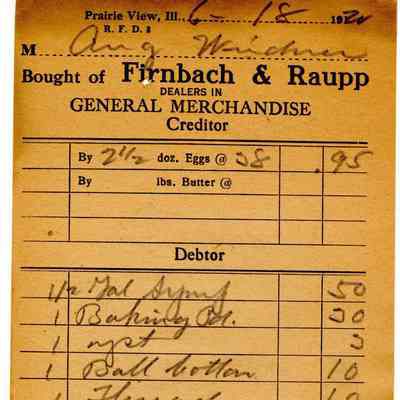 Prairie View, Ill. 6-18 1920
R. F. D. 2
M Aug
Bought of Firnbach & Raupp
DEALERS IN
GENERAL MERCHANDISE
Creditor
By 2 1/2 doz. Eggs @ 38 .95
By lbs. Butter @
Debtor
1/2 Gal Syrup 50
1 Baking Pd. 30
1 3
1 Ball cotton 10
1 Thread 10